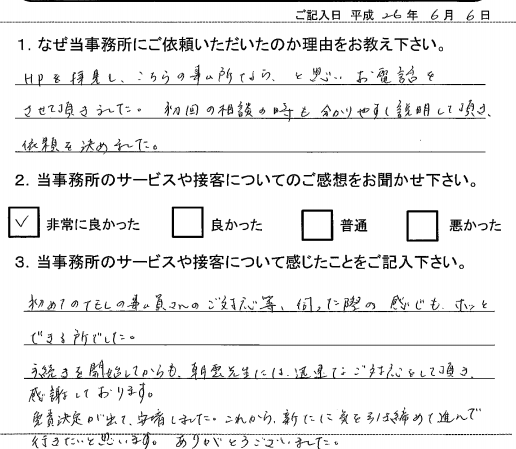 ご記入日 平成 26 年 6 月 6 日
1. なぜ当事務所にご依頼いただいたのか理由をお教え下さい。
HPを拝見し、こちらの事ム所なら、と思いお電話を
させて頂きました。初回の相談の時も分かりやすく説明して頂き、
依頼を決めました。
2. 当事務所のサービスや接客についてのご感想をお聞かせ下さい。
✓ 非常に良かった 良かった 普通 悪かった
3. 当事務所のサービスや接客について感じたことをご記入下さい。
初めてのTELの事ム員さんのご対応等、伺った際の感じも、ホッと
できる所でした。
手続きを開始してからも、朝雲先生には、迅速なご対応をして頂き、
感謝しております。
免責決定が出て、安堵しました。これから、新たに気を引き締めて進んで
行きたいと思います。ありがとうございました。